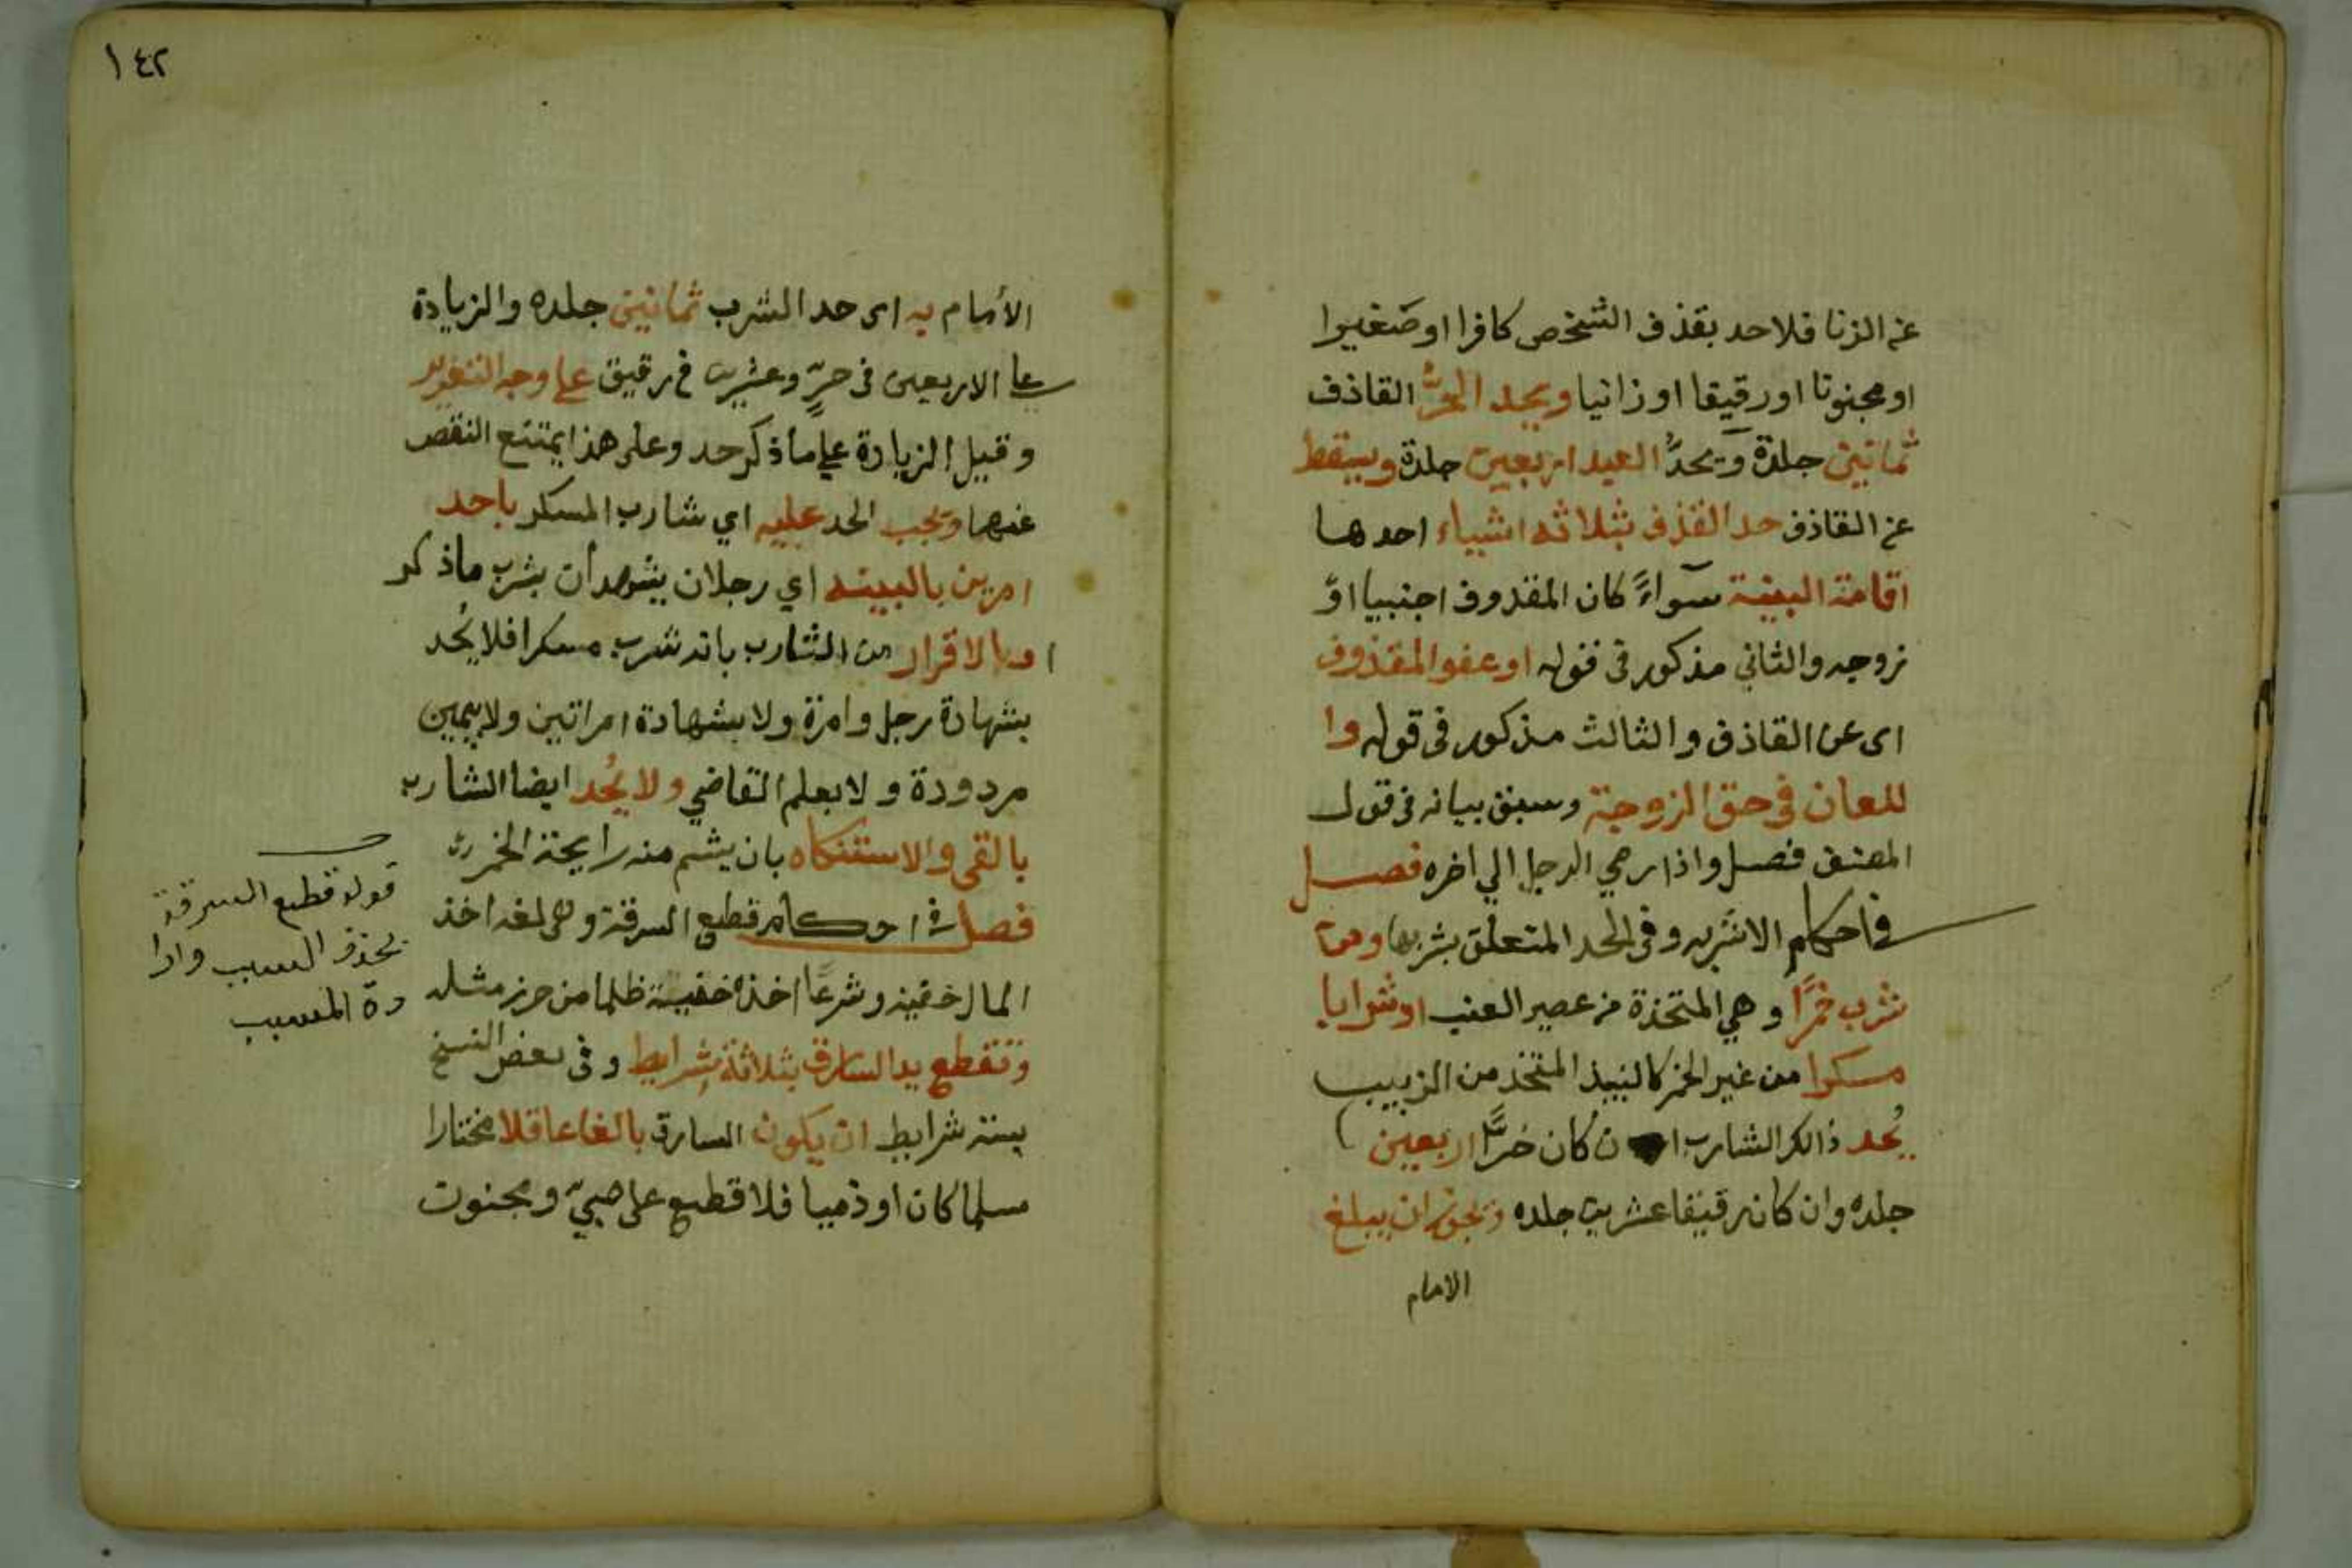 عن الزنا فلا حد بقذف الشخص كافرا او صغيرا
او مجنونا او رقيقا او زانيا ويحد الحرُّ القاذف
ثمانين جلدة ويحدُّ العبد اربعين جلدة ويسقط
عن القاذف حد القذف بثلاثه اشياء احدها
اقامة البينة سوآءً كان المقذوف اجنبيا اوْ
زوجه والثاني مذكور في قوله او عفو المقذوف
اى عن القاذف والثالث مذكور فى قوله وا
للعان في حق الزوجة وسبق بيانه في قول
المصنف فصل واذا رمي الرجل الي اخره فصل
في احكام الاشربه وفي الحد المتعلق بشربها ومن
شرب خمرًا وهي المتخذة من عصير العنب او شرابا
مسكرا من غير الخمر كالنبيذ المتخذ من الزبيب
يُحد ذالك الشارب ان كان حُرًّا اربعين
جلده وان كان رقيقا عشرين جلده ويجوز ان يبلغ
الامام
١٤٢
الأمام به اى حد الشرب ثمانين جلده والزيادة
على الاربعين فى حرٍّ وعشرين في رقيق على وجه التعزير
وقيل الزيادة علي ما ذكر حد وعلى هذا يمتنع النقص
عنها ويجب الحد عليه اي شارب المسكر باحد
امرين بالبينه اي رجلان يشهدان بشرب ما ذكر
او بالاقرار من الشارب بانه شرب مسكرا فلا يُحد
بشهادة رجل وامرة ولا بشهادة امراتين ولا بيمين
مردودة ولا بعلم القاضي ولا يُحد ايضا الشارب
بالقى والاستنكاه بان يشم منه رايحة الخمر
فصل في احكام قطع السرقة وهى لغه اخذ
المال خفية وشرعًا اخذه خفية ظلما من حرز مثله
وتقطع يد السارق بثلاثة شرايط وفى بعض النسخ
بستة شرايط ان يكون السارق بالغا عاقلا مختارا
مسلما كان او ذميا فلا قطع على صبيّ ومجنون
قوله قطع السرقة
بحذف السبب وارا
دة المسبب